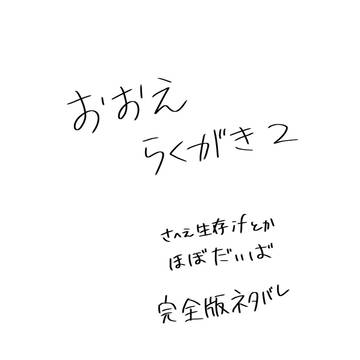 おおえ
らくがき2
さへえ生存ifとか
ほぼだいば
完全版ネタバレ